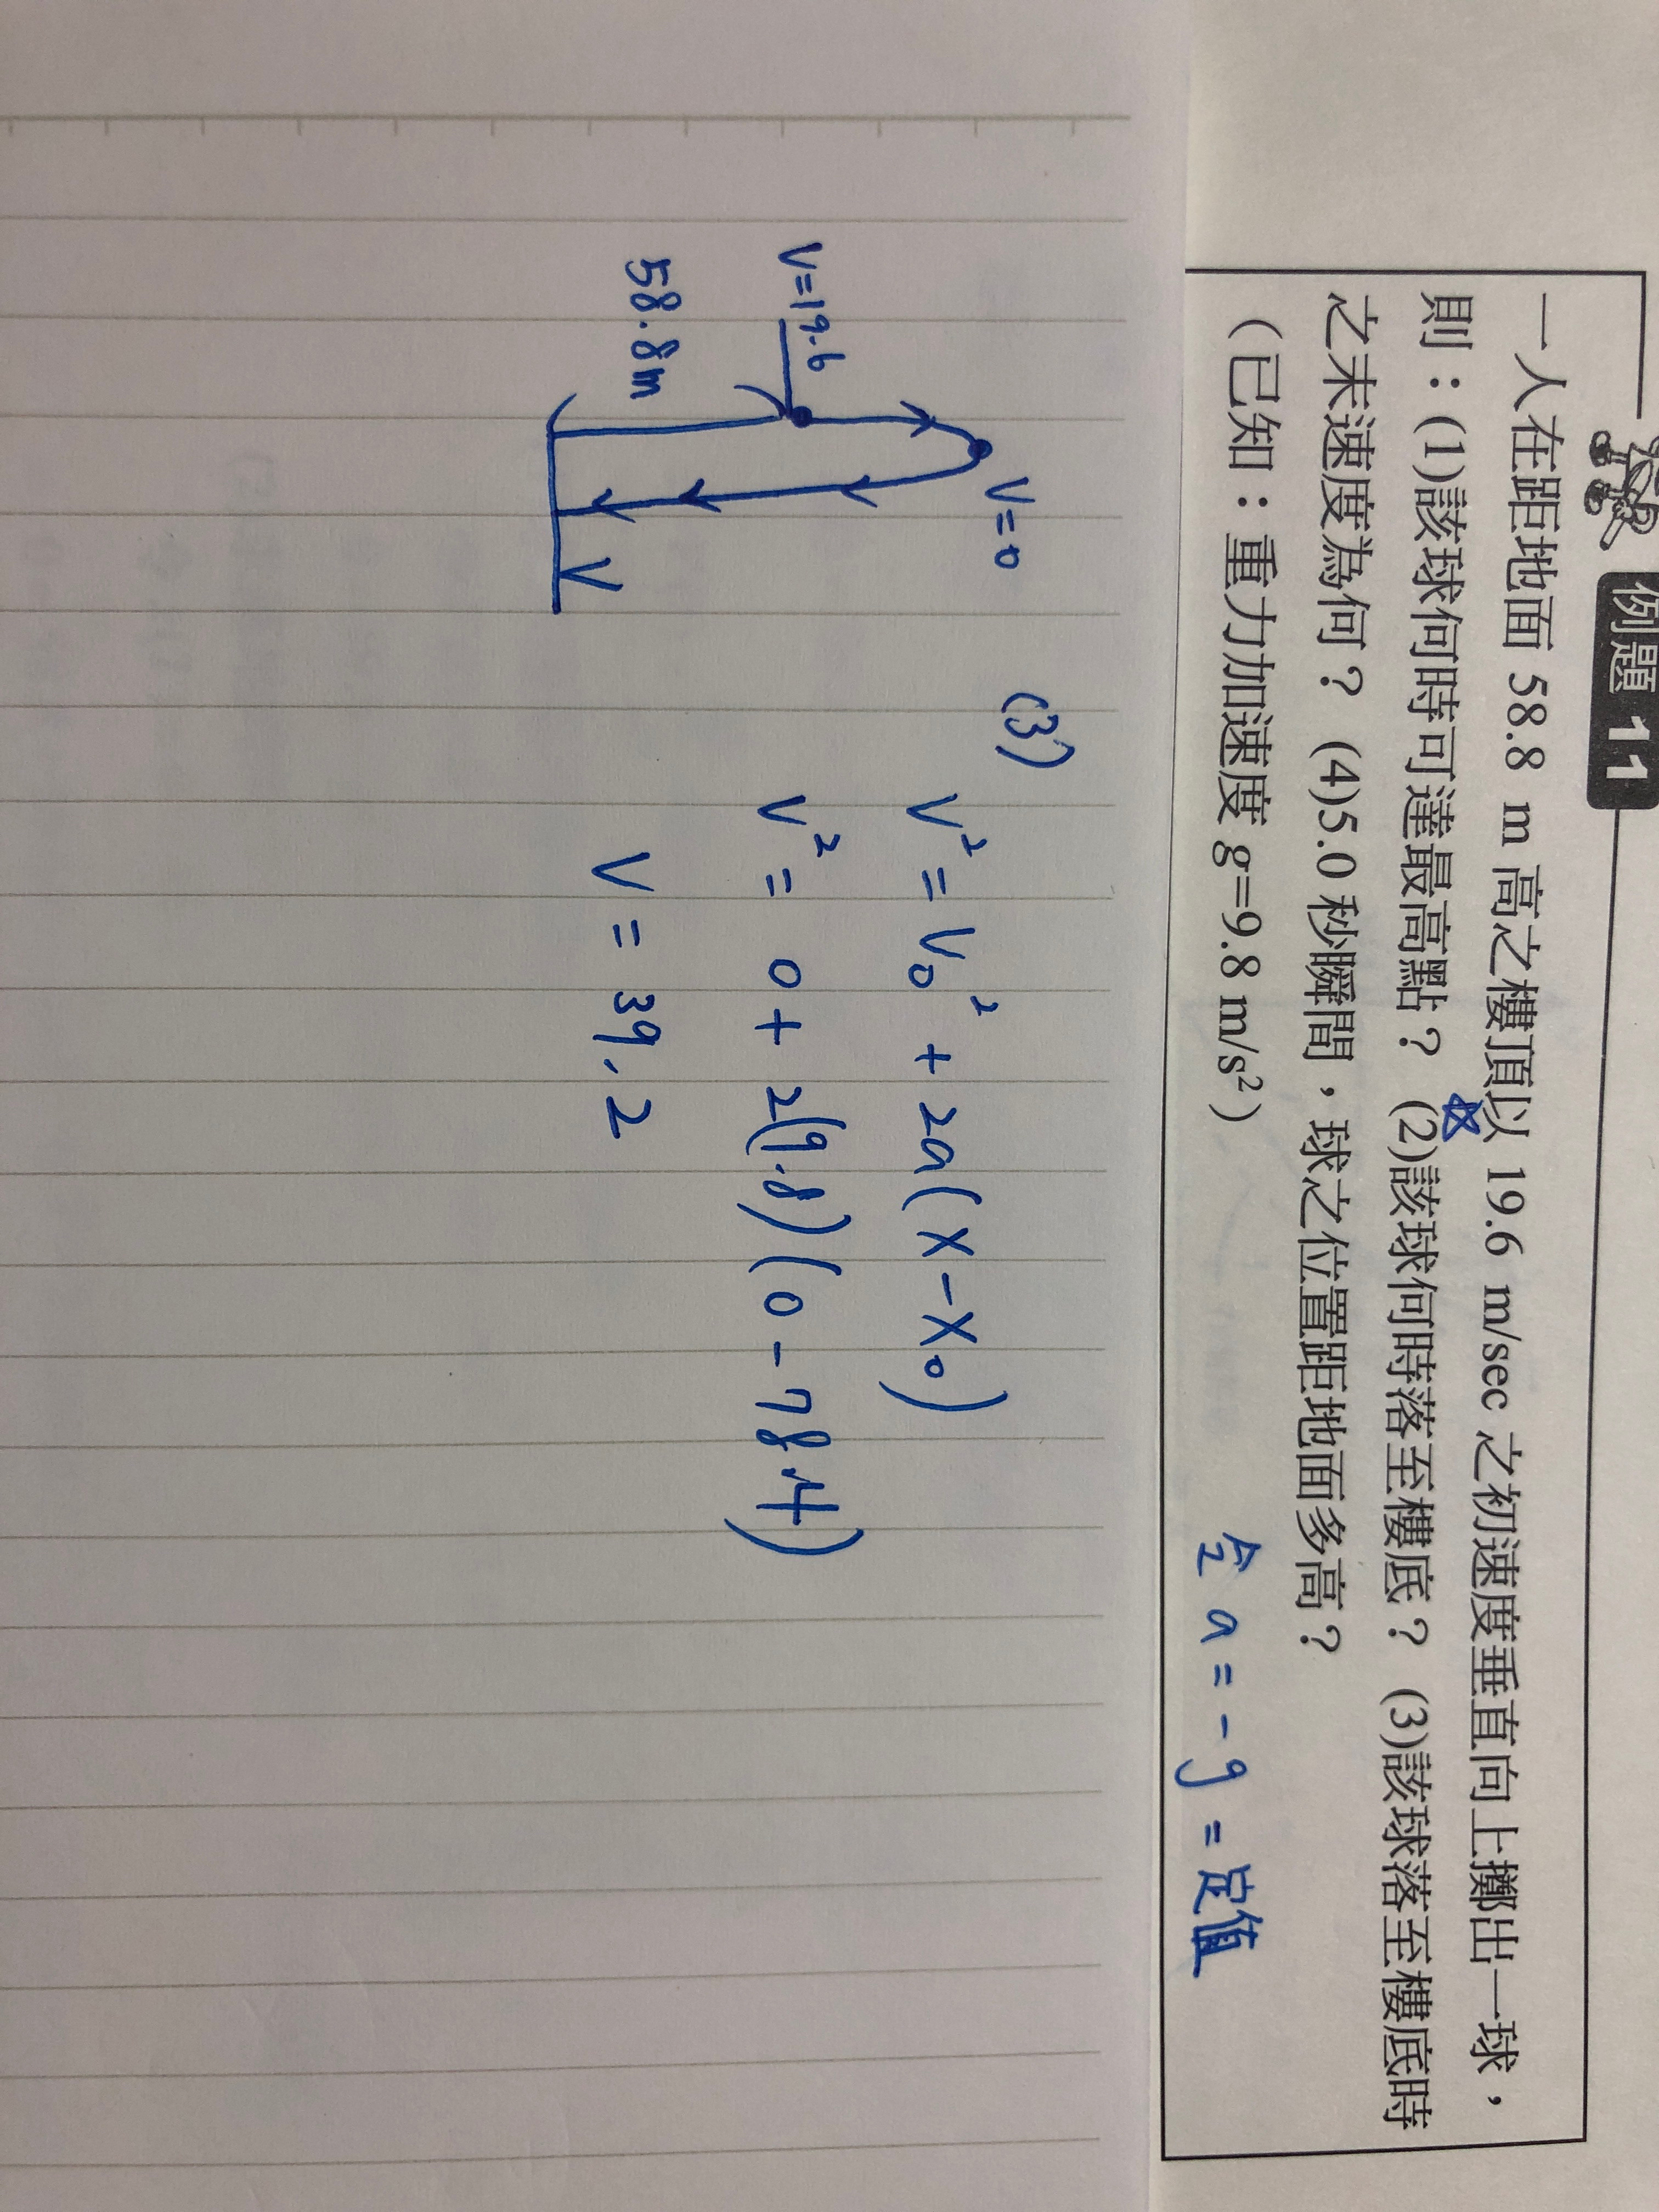 例題 11
一人在距地面 58.8 m 高之樓頂以 19.6 m/sec 之初速度垂直向上擲出一球，
則：(1)該球何時可達最高點？ (2)該球何時落至樓底？ (3)該球落至樓底時
之末速度為何？ (4)5.0 秒瞬間，球之位置距地面多高？
（已知：重力加速度 g=9.8 m/s²）
令 a = -g = 定值
V=0
V=19.6
58.8m
V
(3)
V² = V₀² + 2a(X-X₀)
V² = 0 + 2(9.8)(0-78.4)
V = 39.2